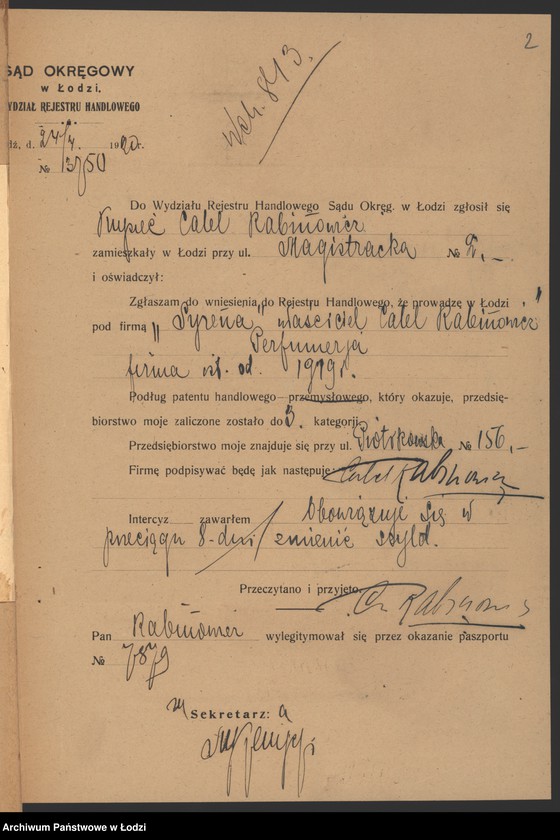 2
SĄD OKRĘGOWY
w Łodzi.
WYDZIAŁ REJESTRU HANDLOWEGO
dź, d. 24/4. 1920 r.
№ 13750
Wch. 813.
Do Wydziału Rejestru Handlowego Sądu Okręg. w Łodzi zgłosił się
Kupiec Calel Rabinowicz
zamieszkały w Łodzi przy ul. Magistracka №
i oświadczył:
Zgłaszam do wniesienia do Rejestru Handlowego, że prowadzę w Łodzi
pod firmą „Syrena" właściciel Calel Rabinowicz"
Perfumerja
firma ist. od 1919 r.
Podług patentu handlowego—przemysłowego, który okazuje, przedsię-
biorstwo moje zaliczone zostało do 3. kategorji
Przedsiębiorstwo moje znajduje się przy ul. Piotrkowska № 156,—
Firmę podpisywać będę jak następuje: Calel Rabinowicz
Intercyz zawarłem Obowiązuje się w
przeciągu 8-dni zmienić szyld.
Przeczytano i przyjęto. C. Rabinowicz
Pan Rabinowicz wylegitymował się przez okazanie paszportu
№ 7879
Sekretarz:
Archiwum Państwowe w Łodzi